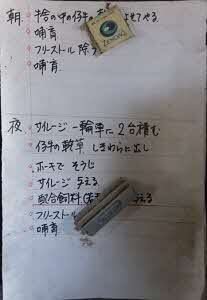 朝 牛舎の中の仔牛の よせてやる
哺育
フリーストール 除
哺育
夜 サイレージ 一輪車に2台積む
仔牛の敷草 しきわらに出し
ホーキで そうじ
サイレージ 与える
配合飼料 える
フリーストール
哺育